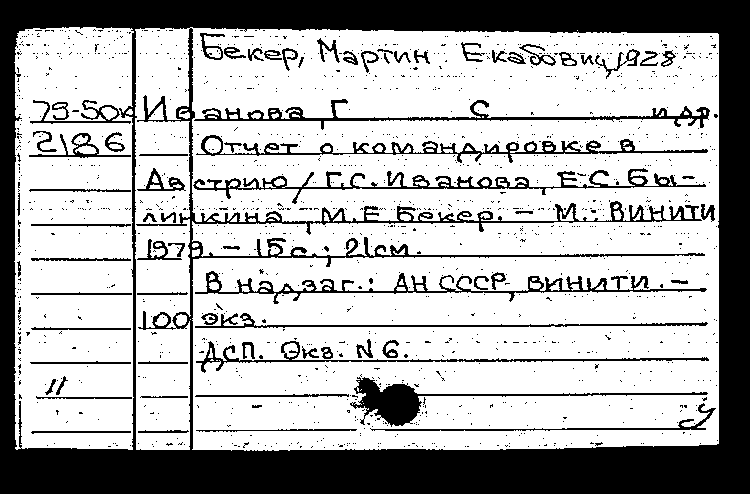 Бекер, Мартин Екабович, 1928
79-50к Иванова, Г С и др.
2186 Отчет о командировке в
Австрию / Г.С. Иванова, Е.С. Бы-
линкина, М.Е. Бекер. – М.: ВИНИТИ
1979. – 15 с.; 21 см.
В надзаг.: АН СССР, ВИНИТИ. –
100 экз.
ДСП. Экз. N 6.
11